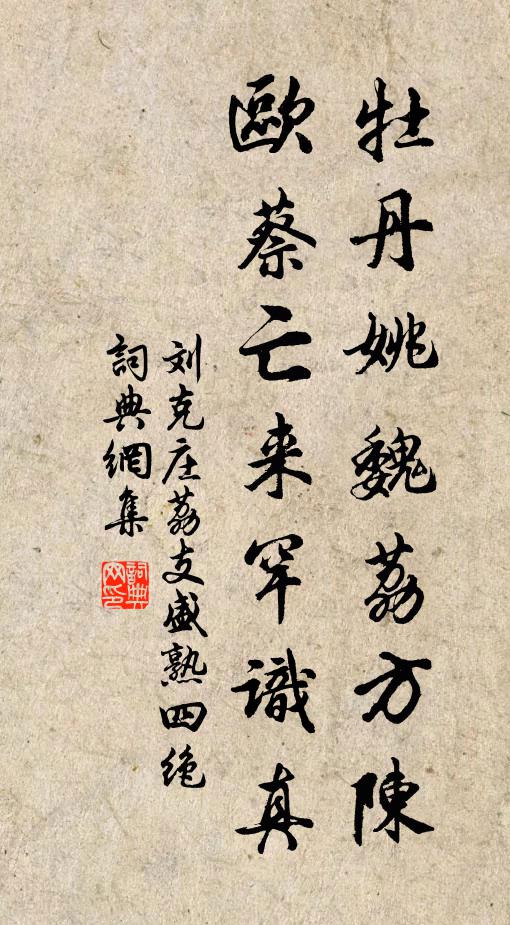 牡丹姚魏荔方陳
歐蔡亡来罕識真
刘克庄荔支盛熟四绝
詞典網集
詞典网印